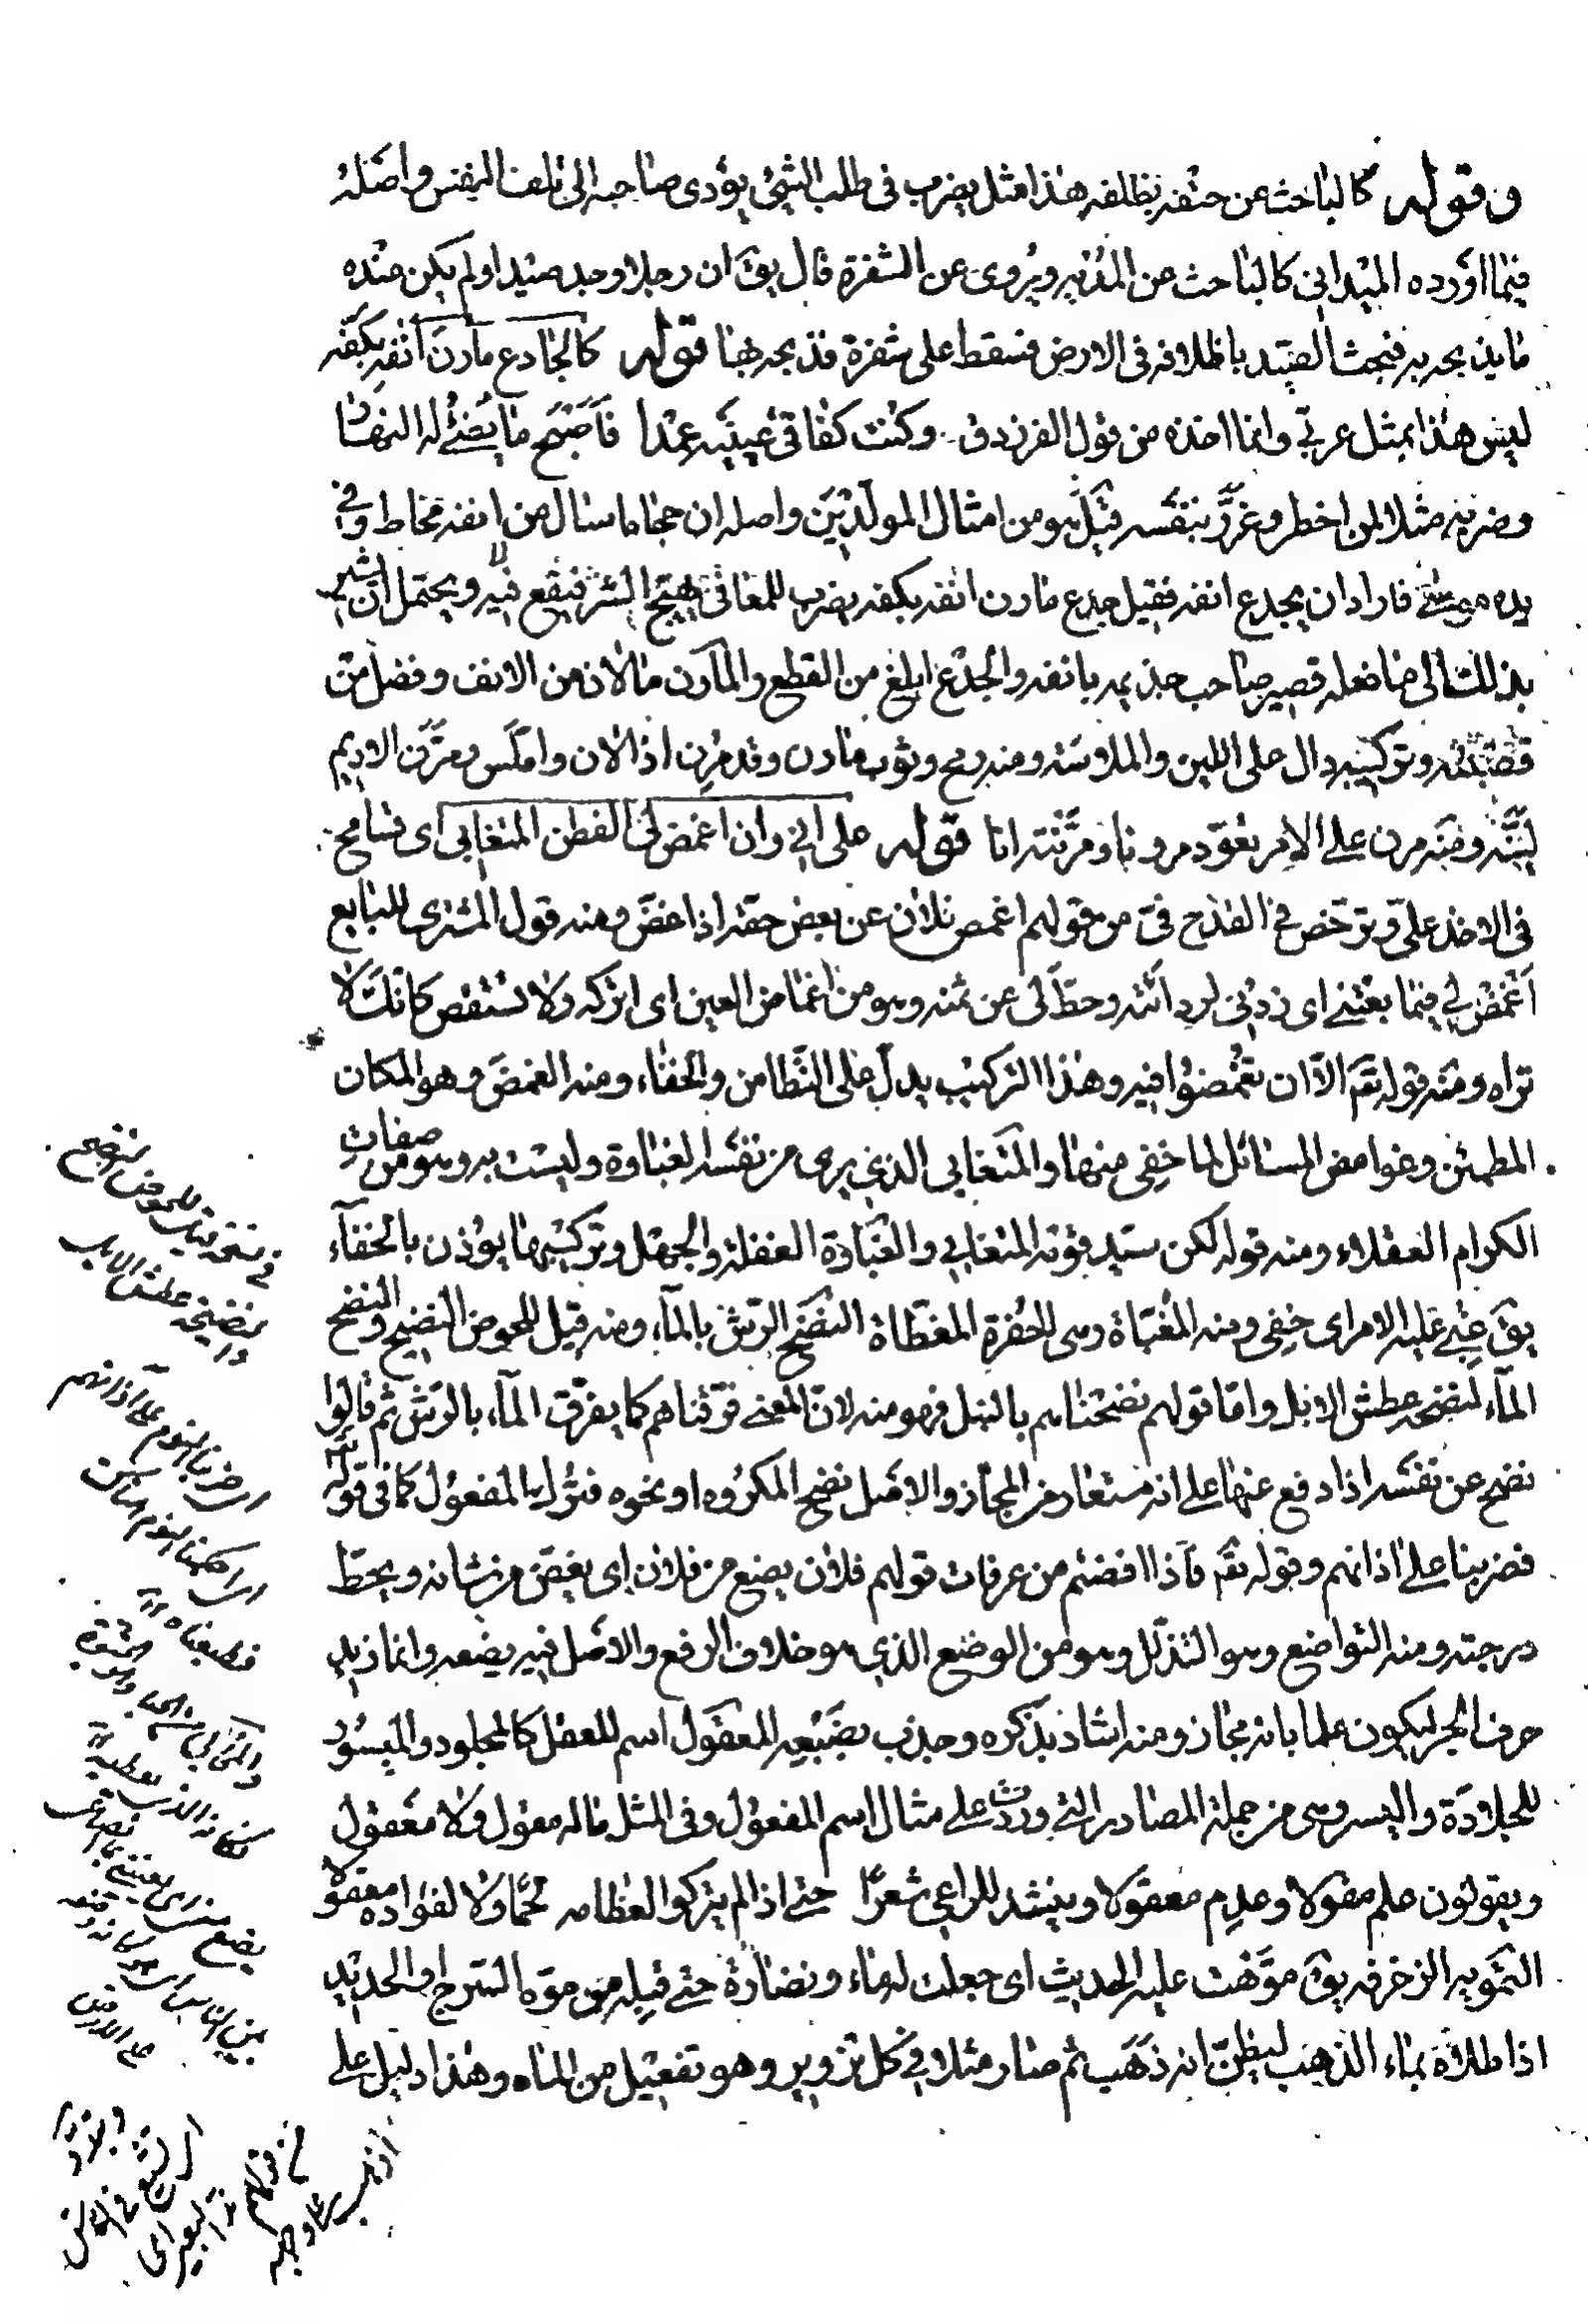 وقوله كالباحث عن حتفه بظلفه هذا مثل يضرب فى طلب الشئ يؤدى صاحبه الى تلف النفس واصله
فيما اورده الميدانى كالباحث عن المدية ويروى عن الشفرة قال يق ان رجلا وجد صيدا ولم يكن عنده
ما يذبحه به فبحث الصيد باظلافه فى الارض فسقط على شفرة فذبحه بها قوله كالجادع مارن انفه بكفه
ليس هذا بمثل عربى وانما اخذه من قول الفرزدق وكنت كفاقئ عينيه عمدا فاصبح ما يضئ له النهار
وضربه مثلا لمن اخطر وغرر بنفسه قيل هو من امثال المولدين واصله ان حجاما سال من انفه مخاط وفى
يده موسى فاراد ان يجدع انفه فقيل جدع مارن انفه بكفه يضرب للمعانى يهيج الشر فيقع فيه ويحتمل ان اشير
بذلك الى ما فعله قصير صاحب جذيمه بانفه والجدع ابلغ من القطع والمارن ما لان من الانف وفضل من
قصبته وتركيبه دال على اللين والملاسة ومنه رمح وثوب مارن وقد مرن اذا لان واملس ومرن الاديم
لينه ومنه مرن على الامر تعود مرونا ومرنته انا قوله على انى وان اغمض لى الفطن المتغابى اى تسامح
فى الاخذ على وترخص فى القدح فى من قولهم اغمض فلان عن بعض حقه اذا غض ومنه قول المشترى للبايع
اغمض لى فيما بعتنى اى زدنى لرداءته وحط لى عن ثمنه وهو من اغماض العين اى اتركه ولا تستقص كانك لا
تراه ومنه قوله تع الا ان تغمضوا فيه وهذا التركيب يدل على التطامن والخفاء ومنه الغمض وهو المكان
المطمئن وغوامض المسائل لما خفى منها والمتغابى الذى يرى من نفسه الغباوة وليست به وهو من صفات
الكرام العقلاء ومنه قوله لكن سيد قومه المتغابى والغباوة الغفلة والجهل وتركيبها يؤذن بالخفاء
يق غبى عليه الامر اى خفى ومنه المغباة وهى للحفرة المغطاة النضح الرش بالماء ومنه قيل للحوض النضيح والنضح
الماء لنضحه عطش الابل واما قولهم نضحناهم بالنبل فهو منه لان المعنى فرقناهم كما يفرق الماء بالرش ثم قالوا
نضح عن نفسه اذا دفع عنها على انه مستعار من المجاز والاصل نضح المكروه او نحوه فترك المفعول كما فى قوله تع
فضربنا على اذانهم وقوله تع فاذا افضتم من عرفات قولهم فلان يضع من فلان اى يغض من شانه ويحط
درجته ومنه التواضع وهو التذلل وهو من الوضع الذى هو خلاف الرفع والاصل فيه يضعه وانما زيد
حرف الجر ليكون علما بانه مجاز ومنه اشاد بذكره وجذب بضبعه المعقول اسم للعقل كالمجلود والميسور
للجلادة واليسر وهى من جملة المصادر التى وردت على مثال اسم المفعول وفى المثل ماله معول ولا معقول
ويقولون علم مقولا وعدم معقولا وينشد للراعى شعرا حتى اذا لم يتركوا لعظامه لحما ولا لفؤاده معقولا
التمويه الزخرفه يق موهت عليه الحديث اى جعلت له ماء ونضارة حتى قبله من موه السرج او الحديد
اذا طلاه بماء الذهب ليظن انه ذهب ثم صار مثلا فى كل تزوير وهو تفعيل من الماء وهذا دليل على
للحوض النضيح
عطش الابل